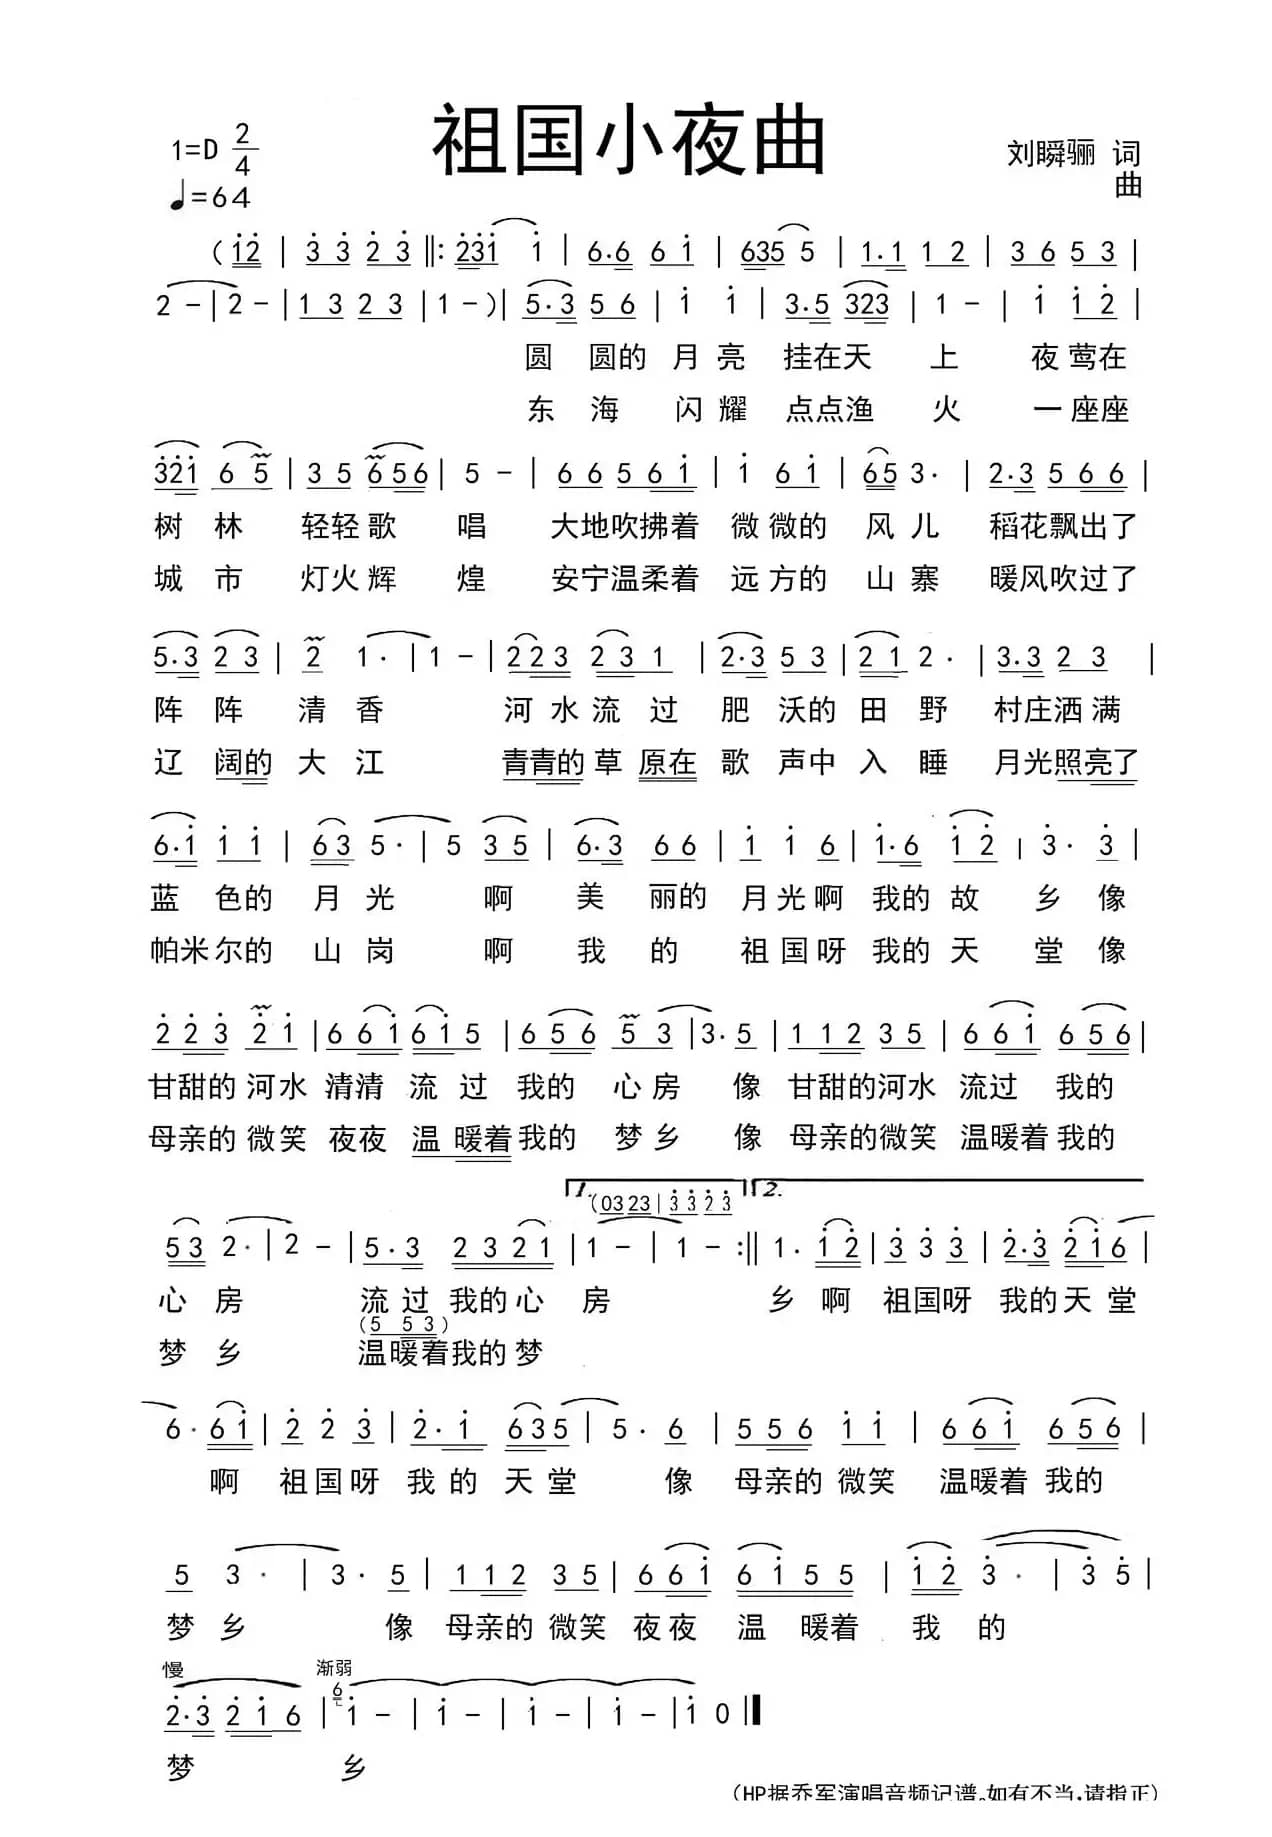 祖国小夜曲
1=D 2/4
♩=64
刘瞬骊 词
曲
(1̇2̇ | 3̇ 3̇ 2̇ 3̇ ‖: 2̇3̇1̇ 1̇ | 6.6 6 1̇ | 635 5 | 1.1 1 2 | 3 6 5 3 |
2 - | 2 - | 1 3 2 3 | 1 - ) | 5.3 5 6 | 1̇ 1̇ | 3.5 323 | 1 - | 1̇ 1̇ 2̇ |
圆 圆的 月 亮 挂在天 上 夜 莺在
东 海 闪 耀 点点渔 火 一 座座
3̇2̇1̇ 6 5 | 3 5 656 | 5 - | 6 6 5 6 1̇ | 1̇ 6 1̇ | 65 3. | 2.3 5 6 6 |
树 林 轻轻歌 唱 大地吹拂着 微 微的 风 儿 稻花飘出了
城 市 灯火辉 煌 安宁温柔着 远 方的 山 寨 暖风吹过了
5.3 2 3 | 2 1. | 1 - | 2 2 3 2 3 1 | 2.3 5 3 | 2 1 2. | 3.3 2 3 |
阵 阵 清 香 河 水 流 过 肥 沃的 田 野 村庄洒 满
辽 阔的 大 江 青青的 草 原在 歌 声中 入 睡 月光照亮了
6.1̇ 1̇ 1̇ | 6 3 5. | 5 3 5 | 6.3 6 6 | 1̇ 1̇ 6 | 1̇.6 1̇ 2̇ | 3̇. 3̇ |
蓝 色的 月 光 啊 美 丽的 月光啊 我的 故 乡 像
帕米尔的 山 岗 啊 我 的 祖国呀 我的 天 堂 像
2̇ 2̇ 3̇ 2̇ 1̇ | 6 6 1̇ 6 1̇ 5 | 6 5 6 5 3 | 3. 5 | 1 1 2 3 5 | 6 6 1̇ 6 5 6 |
甘甜的 河水 清清 流 过 我的 心 房 像 甘甜的河水 流过 我的
母亲的 微笑 夜夜 温 暖着 我的 梦 乡 像 母亲的微笑 温暖着 我的
1. (03 23 | 3̇ 3̇ 2̇ 3̇ 2.
5 3 2. | 2 - | 5. 3 2 3 2 1 | 1 - | 1 - :‖ 1. 1̇ 2̇ | 3̇ 3̇ 3̇ | 2̇.3̇ 2̇ 1̇ 6 |
心 房 流 过 我的 心 房 乡 啊 祖国呀 我的天 堂
(5 5 3)
梦 乡 温暖着我的 梦
6. 6 1̇ | 2̇ 2̇ 3̇ | 2̇. 1̇ 6 3 5 | 5. 6 | 5 5 6 1̇ 1̇ | 6 6 1̇ 6 5 6 |
啊 祖国呀 我 的 天 堂 像 母亲的 微笑 温暖着 我的
5 3. | 3. 5 | 1 1 2 3 5 | 6 6 1̇ 6 1̇ 5 5 | 1̇ 2̇ 3̇. | 3̇ 5̇ |
梦 乡 像 母亲的 微笑 夜夜 温 暖着 我 的
慢 渐弱
2̇.3̇ 2̇ 1̇ 6 | 6 1̇ - | 1̇ - | 1̇ - | 1̇ - | 1̇ 0 ‖
梦 乡
(HP据乔军演唱音频记谱。如有不当,请指正)